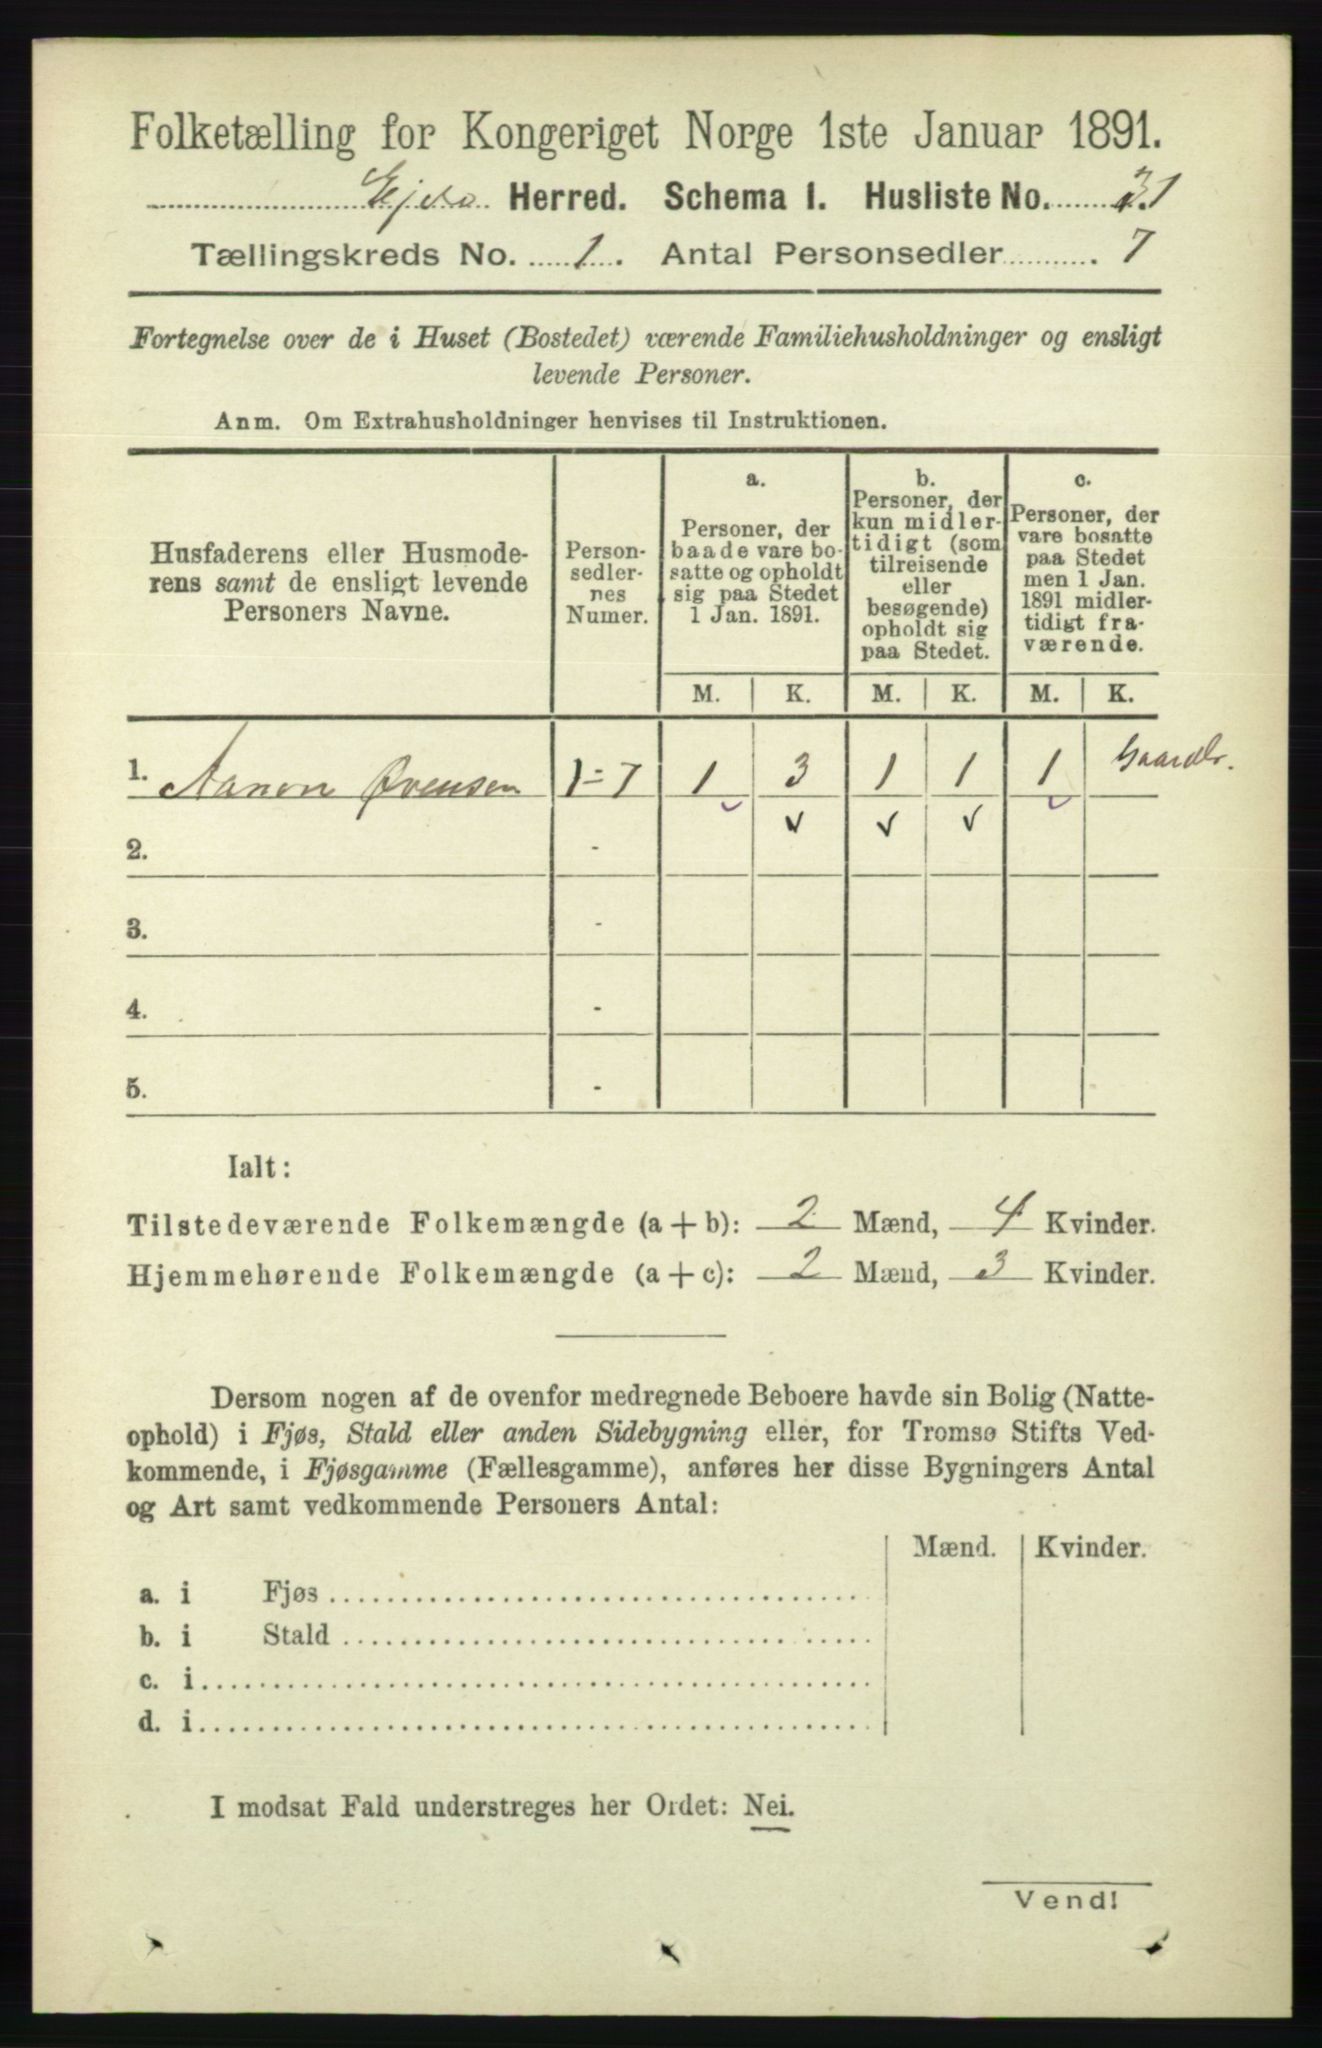 Folketælling for Kongeriget Norge 1ste Januar 1891.
Herred. Schema I. Husliste No. 31
Tællingskreds No. 1. Antal Personsedler 7
Fortegnelse over de i Huset (Bostedet) værende Familiehusholdninger og ensligt
levende Personer.
Anm. Om Extrahusholdninger henvises til Instruktionen.
Husfaderens eller Husmode-
rens samt de ensligt levende
Personers Navne.
Person-
sedler-
nes
Numer.
a.
Personer, der
baade vare bo-
satte og opholdt
sig paa Stedet
1 Jan. 1891.
b.
Personer, der
kun midler-
tidigt (som
tilreisende
eller
besøgende)
opholdt sig
paa Stedet.
c.
Personer, der
vare bosatte
paa Stedet
men 1 Jan.
1891 midler-
tidigt fra-
værende.
M. K. M. K. M. K.
1. Aanon Øvensen 1-7 1 3 1 1 1 Gaardbr.
2. -
3. -
4. -
5. -
Ialt:
Tilstedeværende Folkemængde (a + b): 2 Mænd, 4 Kvinder.
Hjemmehørende Folkemængde (a + c): 2 Mænd, 3 Kvinder.
Dersom nogen af de ovenfor medregnede Beboere havde sin Bolig (Natte-
ophold) i Fjøs, Stald eller anden Sidebygning eller, for Tromsø Stifts Ved-
kommende, i Fjøsgamme (Fællesgamme), anføres her disse Bygningers Antal
og Art samt vedkommende Personers Antal:
Mænd. Kvinder.
a. i Fjøs
b. i Stald
c. i
d. i
I modsat Fald understreges her Ordet: Nei.
Vend!